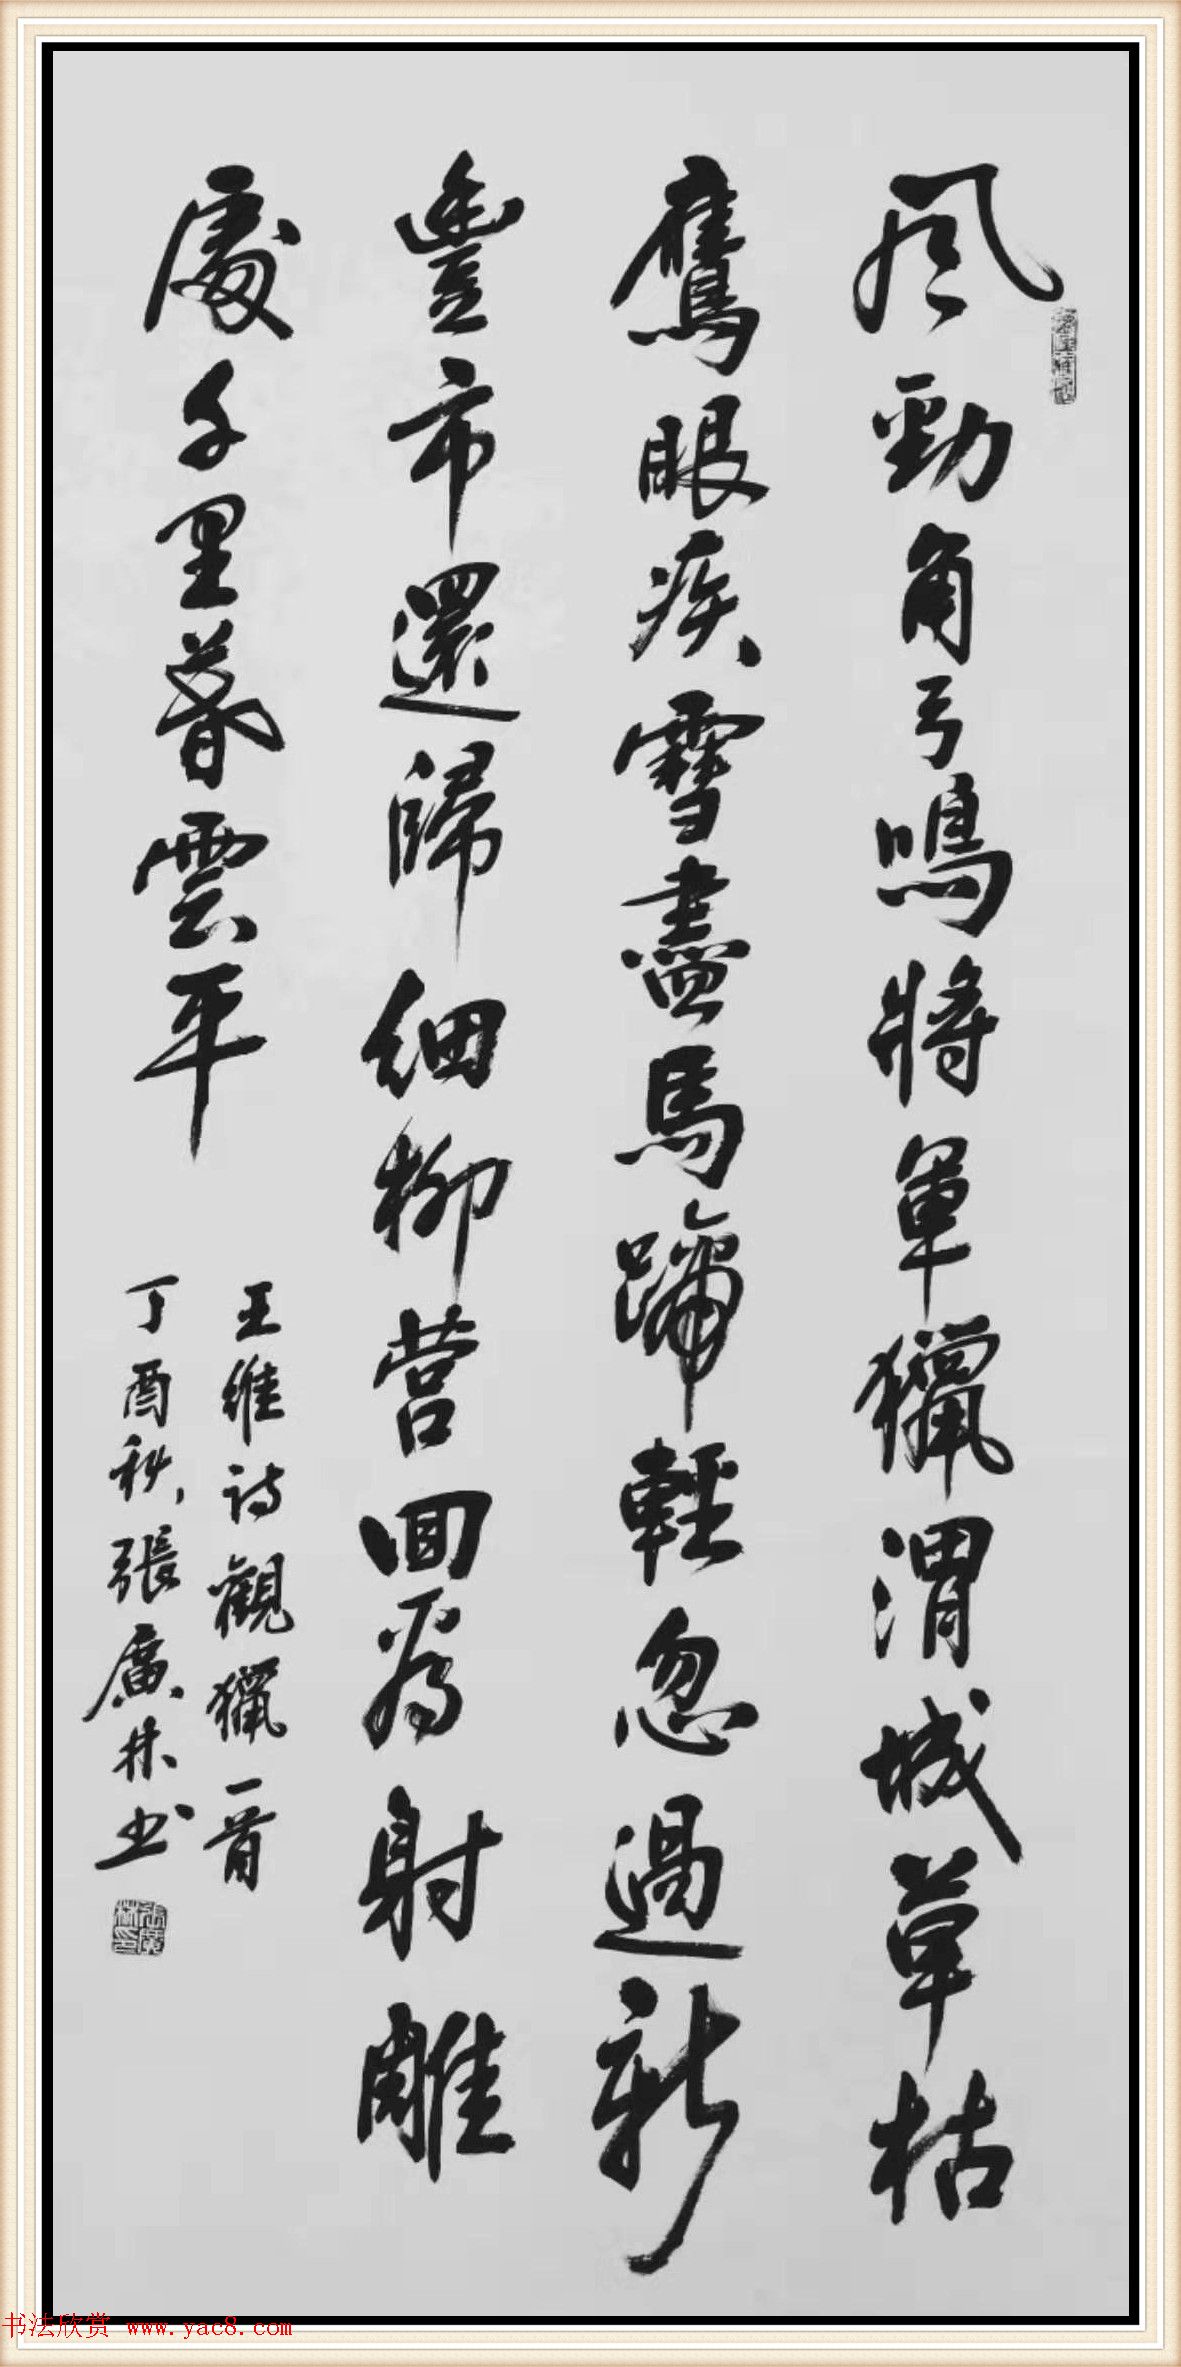 风勁角弓鳴將軍獵渭城草枯
鷹眼疾雪盡馬蹄輕忽過新
豐市還歸細柳营回為射雕
處千里暮雲平
王維诗觀獵一首
丁酉秋張廣林书
張廣林印
书法欣赏 www.yac8.com